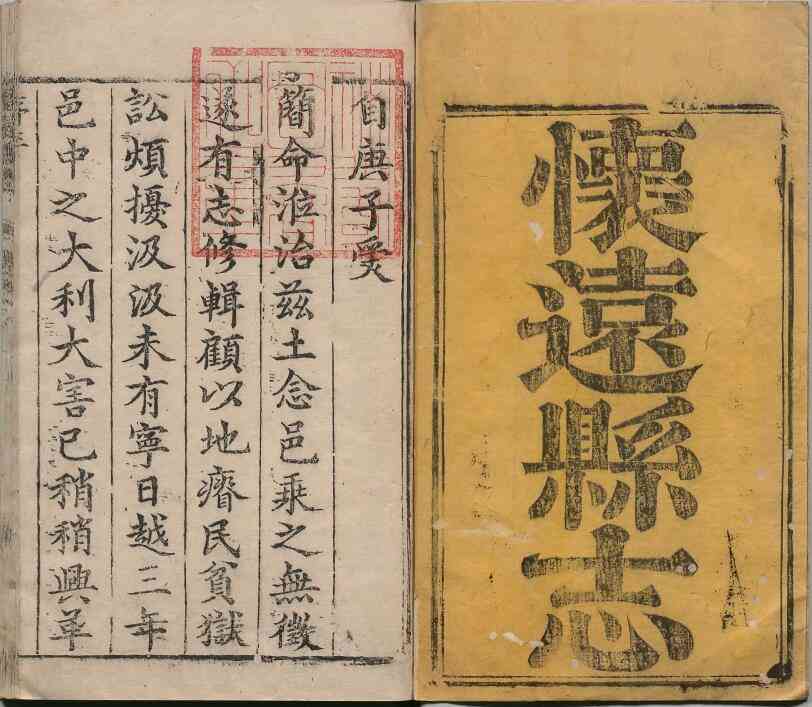 懷遠縣志
自庚子爰
簡命涖治茲土念邑乘之無徵
遂有志修輯顧以地瘠民貧獄
訟煩擾汲汲未有寧日越三年
邑中之大利大害已稍稍興革